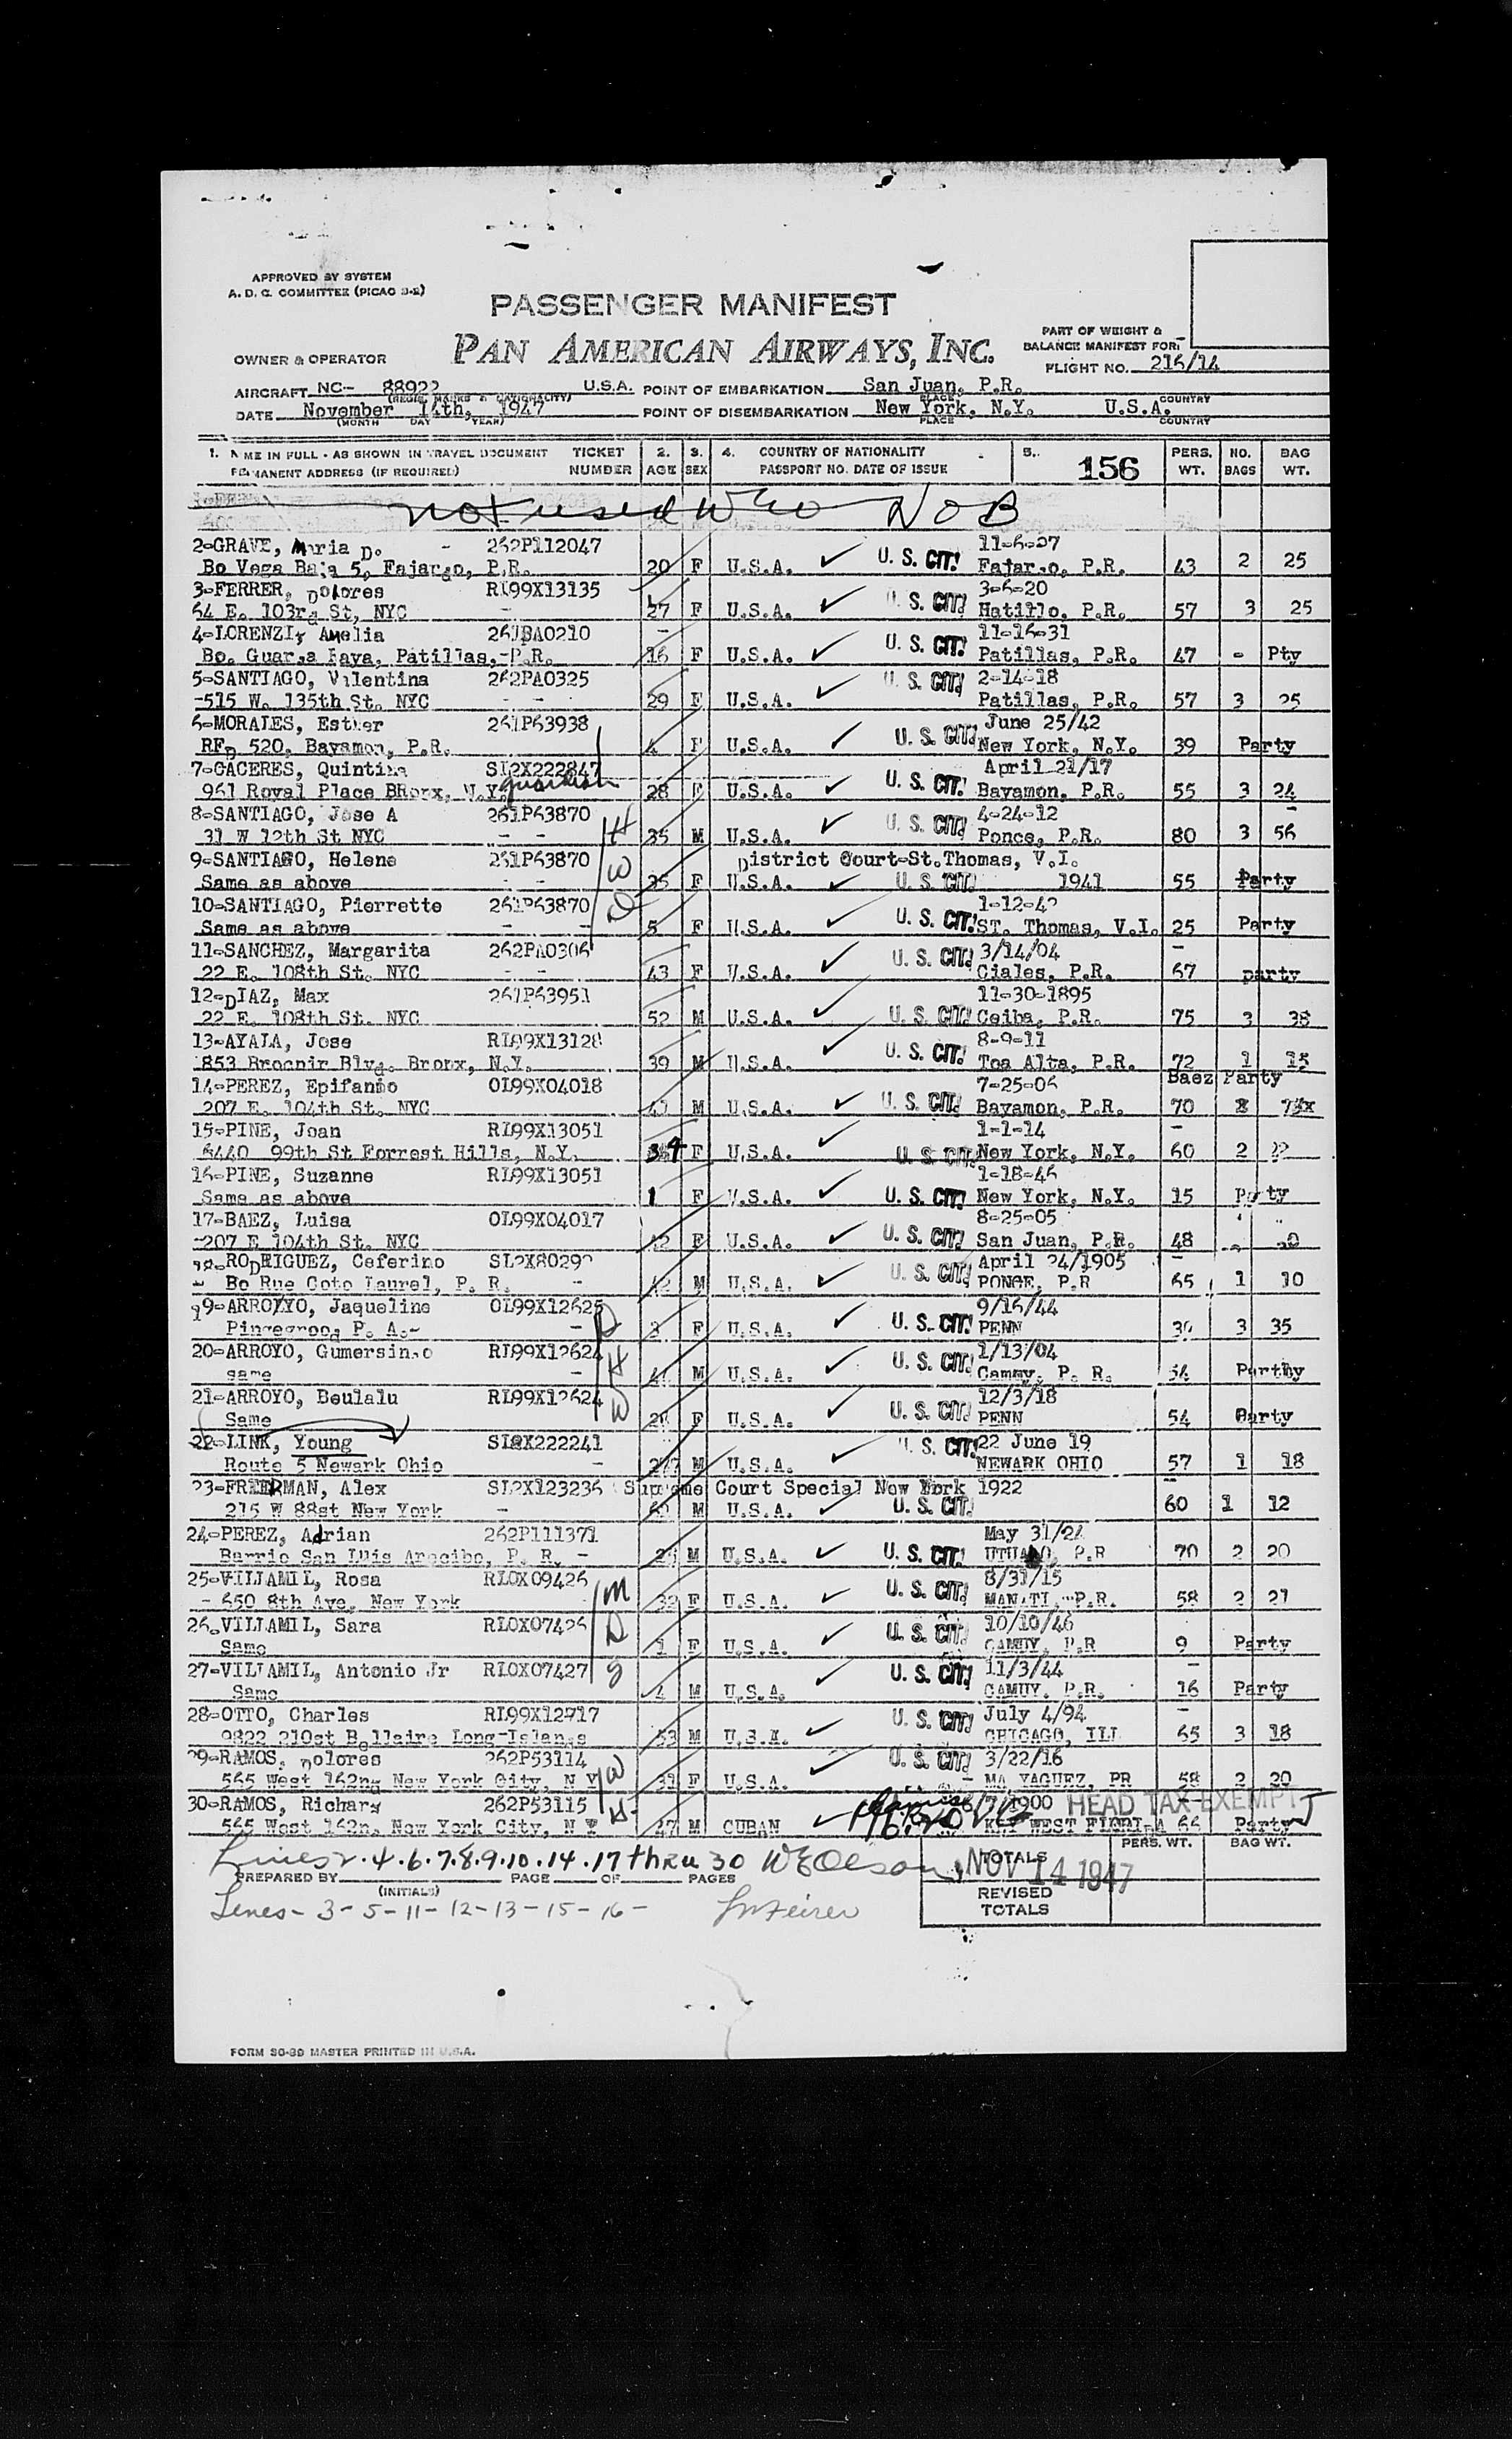 APPROVED BY SYSTEM
A. D. C. COMMITTEE (PICAO 3-2)
PASSENGER MANIFEST
PAN AMERICAN AIRWAYS, INC.
PART OF WEIGHT &
BALANCE MANIFEST FOR:
OWNER & OPERATOR
FLIGHT NO. 216/14
AIRCRAFT NC- 88922 U.S.A. POINT OF EMBARKATION San Juan, P.R.
PLACE COUNTRY
DATE November 14th, 1947 POINT OF DISEMBARKATION New York, N.Y. U.S.A.
(MONTH DAY YEAR) PLACE COUNTRY
1. NAME IN FULL - AS SHOWN IN TRAVEL DOCUMENT TICKET 2. 3. 4. COUNTRY OF NATIONALITY 5. 156 PERS. NO. BAG
PERMANENT ADDRESS (IF REQUIRED) NUMBER AGE SEX PASSPORT NO. DATE OF ISSUE WT. BAGS WT.
not used WEO NOB
2-GRAVE, Maria D. - 262P112047 11-6-27
Bo Vega Baja 5, P.R. 20 F U.S.A. U. S. CIT. P.R. 43 2 25
3-FERRER, Dolores RL99X13135 3-6-20
64 E. 103rd St, NYC 27 F U.S.A. U. S. CIT. Hatillo, P.R. 57 3 25
4-LORENZI, Amelia 11-16-31
Patillas, P.R. 16 F U.S.A. U. S. CIT. Patillas, P.R. 47 - Pty
5-SANTIAGO, Valentina 262PA0325 2-14-18
-515 W. 135th St. NYC 29 F U.S.A. U. S. CIT. Patillas, P.R. 57 3 25
6-MORALES, Esther 261P63938 June 25/42
520, Bayamon, P.R. F U.S.A. U. S. CIT. New York, N.Y. 39 Party
7-CACERES, Quintina SL2X222847 April 21/17
961 Royal Place BRonx, N.Y. guardian 28 F U.S.A. U. S. CIT. Bayamon, P.R. 55 3 24
8-SANTIAGO, Jose A 261P63870 4-24-12
31 W 12th St NYC 35 M U.S.A. U. S. CIT. Ponce, P.R. 80 3 56
9-SANTIAGO, Helene 261P63870 District Court-St.Thomas, V.I.
Same as above 35 F U.S.A. U. S. CIT. 1941 55 Party
10-SANTIAGO, Pierrette 261P63870 1-12-42
Same as above 5 F U.S.A. U. S. CIT. ST. Thomas, V.I. 25 Party
11-SANCHEZ, Margarita 262PA0306 3/14/04
22 E. 108th St. NYC 43 F U.S.A. U. S. CIT. Ciales, P.R. 67 party
12-DIAZ, Max 261P63951 11-30-1895
22 E. 108th St. NYC 52 M U.S.A. U. S. CIT. Ceiba, P.R. 75 3 38
13-AYALA, Jose RL99X13128 8-9-11
853 Blvd. Bronx, N.Y. 39 M U.S.A. U. S. CIT. Toa Alta, P.R. 72 1 15
14-PEREZ, Epifanio OL99X04018 7-25-06 Baez Party
207 E. 104th St. NYC 41 M U.S.A. U. S. CIT. Bayamon, P.R. 70
15-PINE, Joan RL99X13051 1-1-14
6440 99th St Forrest Hills, N.Y. 34 F U.S.A. U. S. CIT. New York, N.Y. 60 2 22
16-PINE, Suzanne RL99X13051 1-18-46
Same as above 1 F U.S.A. U. S. CIT. New York, N.Y. 15 Party
17-BAEZ, Luisa OL99X04017 8-25-05
-207 E 104th St. NYC 42 F U.S.A. U. S. CIT. San Juan, P.R. 48
18-RODRIGUEZ, Ceferino SL2X80292 April 24/1905
Bo Rue Coto Laurel, P. R. - 42 M U.S.A. U. S. CIT. PONCE, P.R 65 1 10
19-ARROYO, Jaqueline OL99X12625 9/16/44
P. A.- 3 F U.S.A. U. S. CIT. PENN 30 3 35
20-ARROYO, Gumersindo RL99X12624 1/13/04
same M U.S.A. U. S. CIT. Camuy, P. R. 54 Party
21-ARROYO, Beulalu RL99X12624 12/3/18
Same 28 F U.S.A. U. S. CIT. PENN 54 Party
22-LINK, Young SL2X222241 22 June 19
Route 5 Newark Ohio - M U.S.A. U. S. CIT. NEWARK OHIO 57 1 18
23-FRIERMAN, Alex SL2X123236 Supreme Court Special New York 1922
215 W 88st New York - M U.S.A. U. S. CIT. 60 1 12
24-PEREZ, Adrian 262P111371 May 31/24
Barrio San Luis Arecibo, P. R. - M U.S.A. U. S. CIT. UTUADO, P.R 70 2 20
25-VILLAMIL, Rosa RLOX09426 8/31/15
- 650 8th Ave, New York 32 F U.S.A. U. S. CIT. MANATI, P.R. 58 2 21
26-VILLAMIL, Sara RLOX07426 10/10/46
Same 1 F U.S.A. U. S. CIT. CAMUY, P.R 9 Party
27-VILLAMIL, Antonio Jr RLOX07427 11/3/44
Same 4 M U.S.A. U. S. CIT. CAMUY, P.R. 16 Party
28-OTTO, Charles RL99X12917 July 4/94
9822 210st Bellaire Long-Islands 53 M U.S.A. U. S. CIT. CHICAGO, ILL 65 3 18
29-RAMOS, Dolores 262P53114 3/22/16
565 West 162nd New York City, N Y 31 F U.S.A. U. S. CIT. MAYAGUEZ, PR 58 2 20
30-RAMOS, Richard 262P53115 1900 HEAD TAX EXEMPT
565 West 162n, New York City, N Y 47 M CUBAN KEY WEST FLORIDA 66 Party
Lines 2.4.6.7.8.9.10.14.17 thru 30 WEOlson
PREPARED BY PAGE OF PAGES
(INITIALS)
TOTALS PERS. WT. BAG WT.
NOV 14 1947
Lines - 3 - 5 - 11 - 12 - 13 - 15 - 16 -
REVISED
TOTALS
FORM 30-39 MASTER PRINTED IN U.S.A.